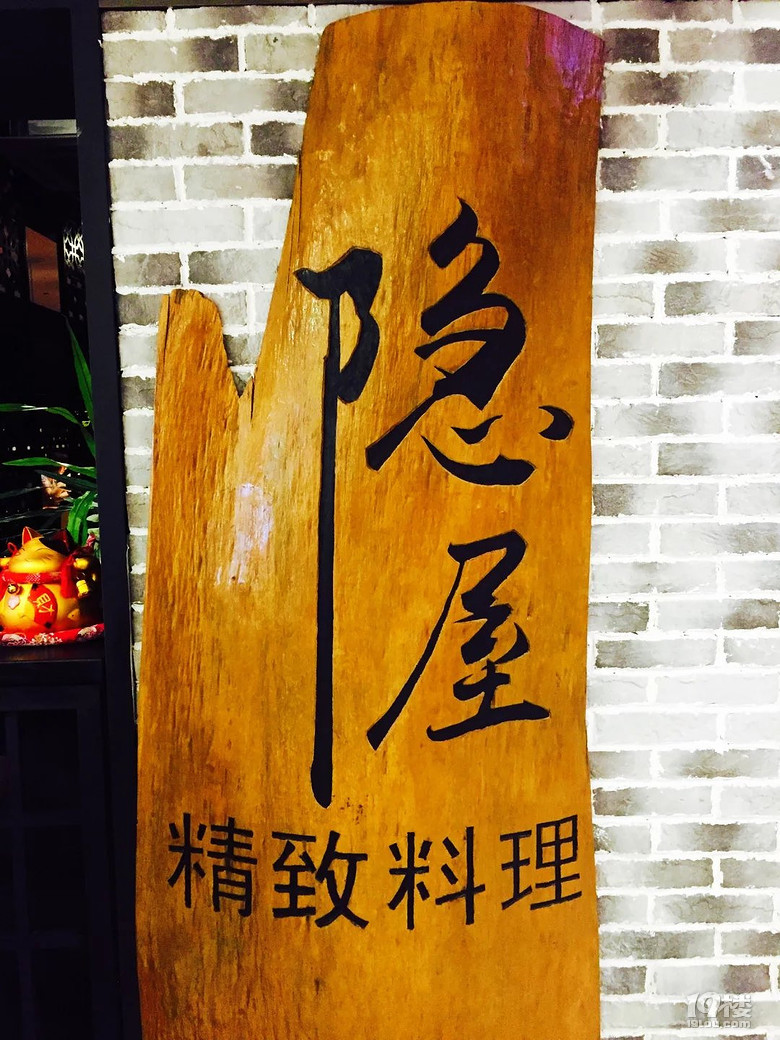 隐屋
精致料理
财
19楼
19lou.com